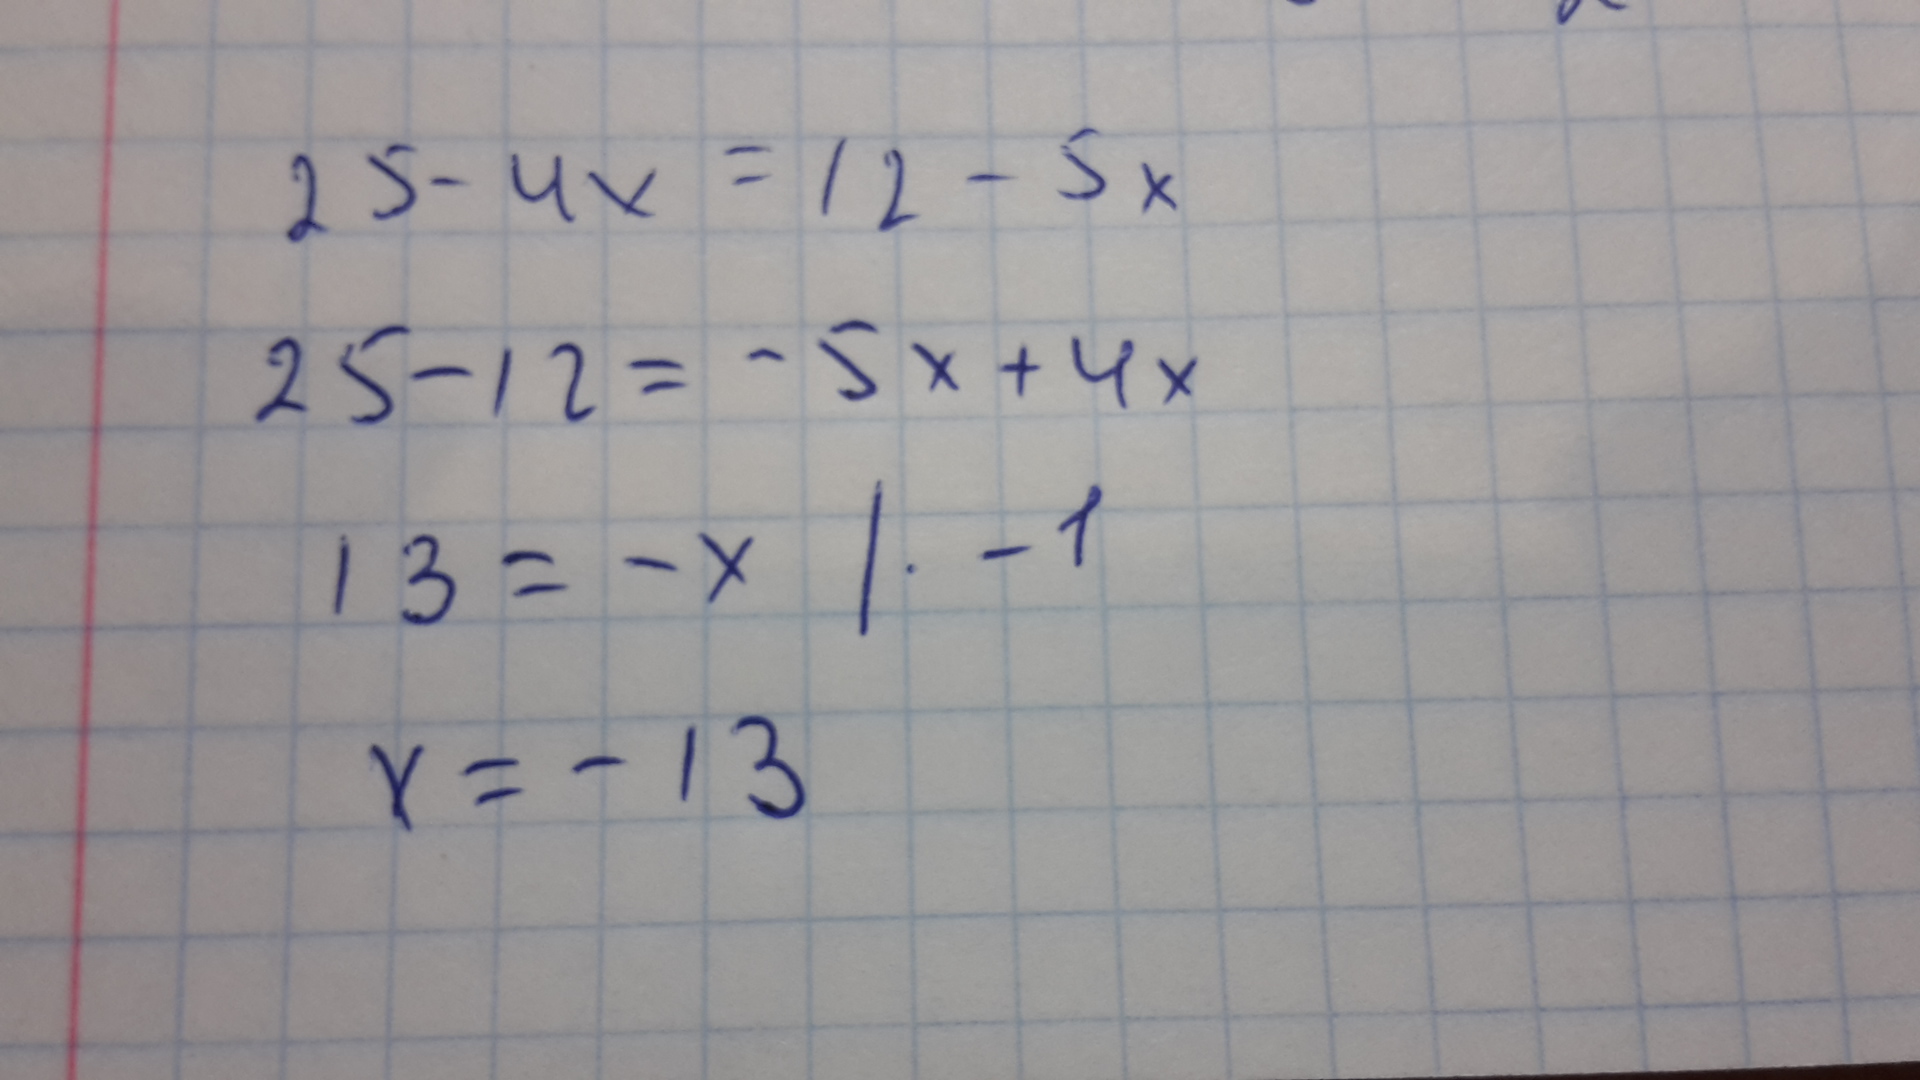 25 - 4x = 12 - 5x
25 - 12 = - 5x + 4x
13 = - x | · - 1
x = - 13